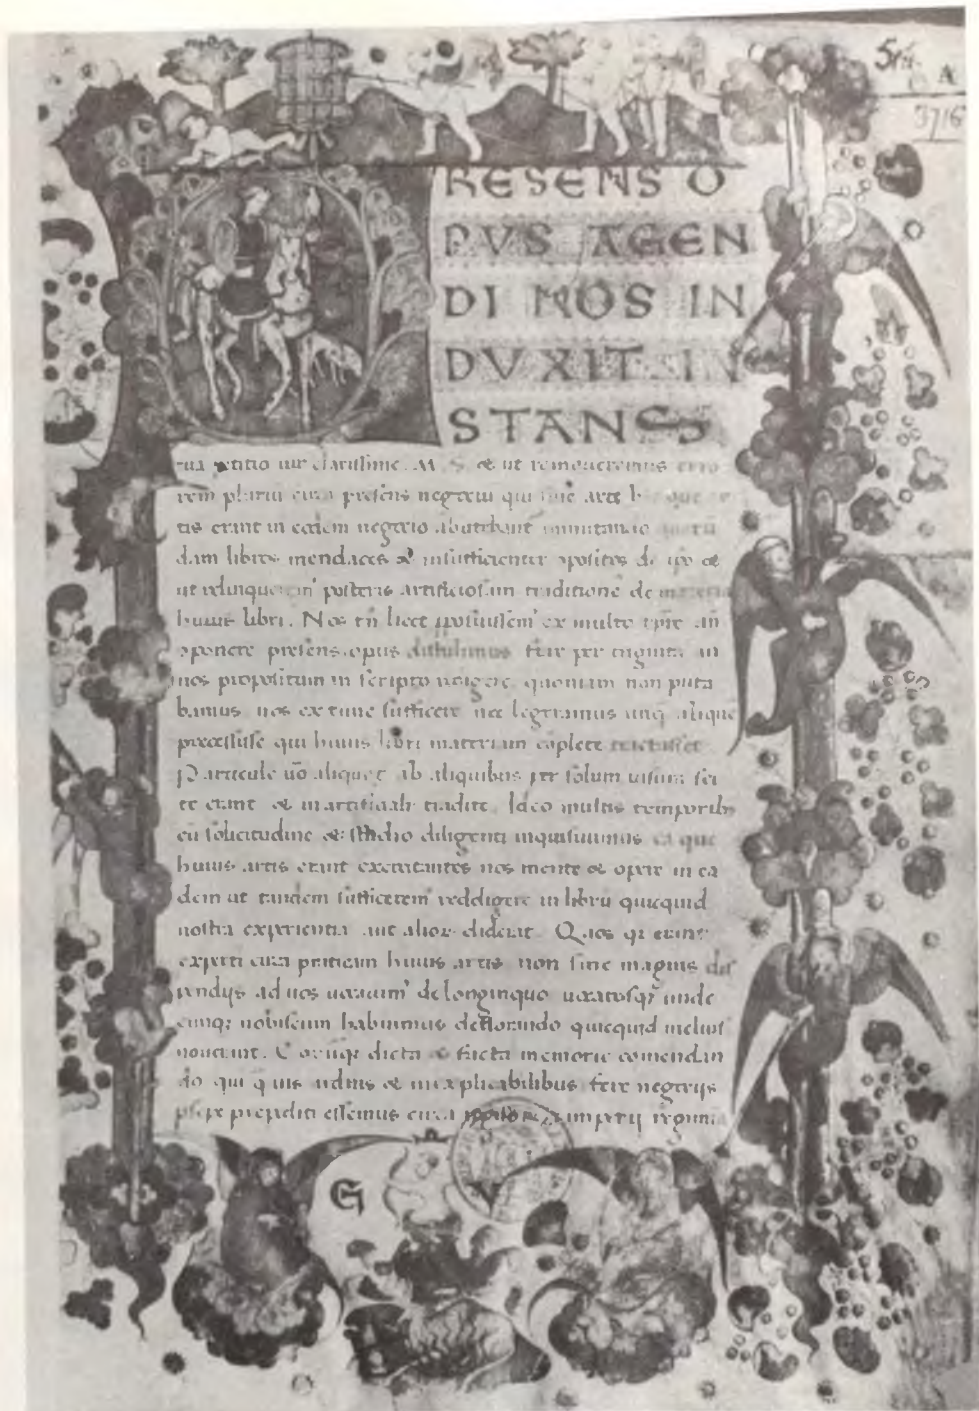 A
3716
RESENS O
PVS AGEN
DI NOS IN
DVXIT IN
STANS
tua petitio uir clarissime. M. S. et ut remoueremus erro
rem plurium circa presens negocium qui huic arti
tis erant in eodem negocio abutebant imitando
dam libros mendaces et insufficienter positos de ipo et
ut relinqueremus posteris artificiosam traditione de materia
huius libri. Nos tn licet ex multo tpre an
ponere presens opus distulimus fere per triginta an
nos propositum in scripto redigere quoniam non puta
bamus nos ex tunc sufficere nec legeramus unq alique
precessisse qui huius libri materiam coplete tractasset
Particule uo aliquot ab aliquibus per solum usum sci
te erant et inartificialr tradite. Ideo multis temporibs
cu solicitudine et studio diligenti inquisiuimus ea que
huius artis erant exercitantes nos mente et opere in ea
dem ut tandem sufficerem redigere in libru quicquid
nostra experientia aut alior didicerat. Quos qi erant
experti circa praticam huius artis non sine magnis dis
pendijs ad nos uocauim de longinquo uocatosq; unde
cunq; nobiscum habuimus deflorando quicquid melius
nouerant. Eorumq; dicta et facta memorie comendan
do qui quis arduis et inexplicabilibus fere negocijs
persepe prepediti essemus circa imperij regimina
G